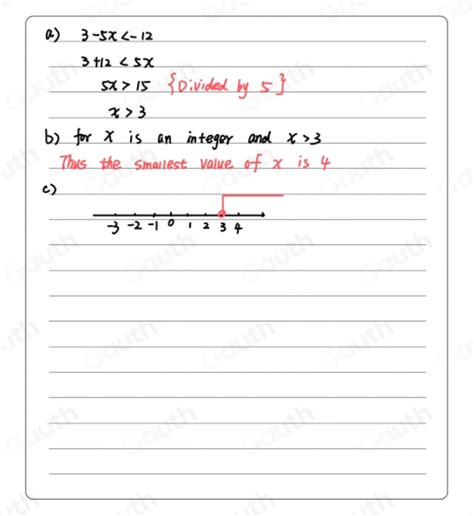 a) 3-5x<-12
3+12 < 5x
5x > 15 {Divided by 5}
x > 3
b) for x is an integer and x>3
Thus the smallest value of x is 4
c)
-3 -2 -1 0 1 2 3 4
Gauth